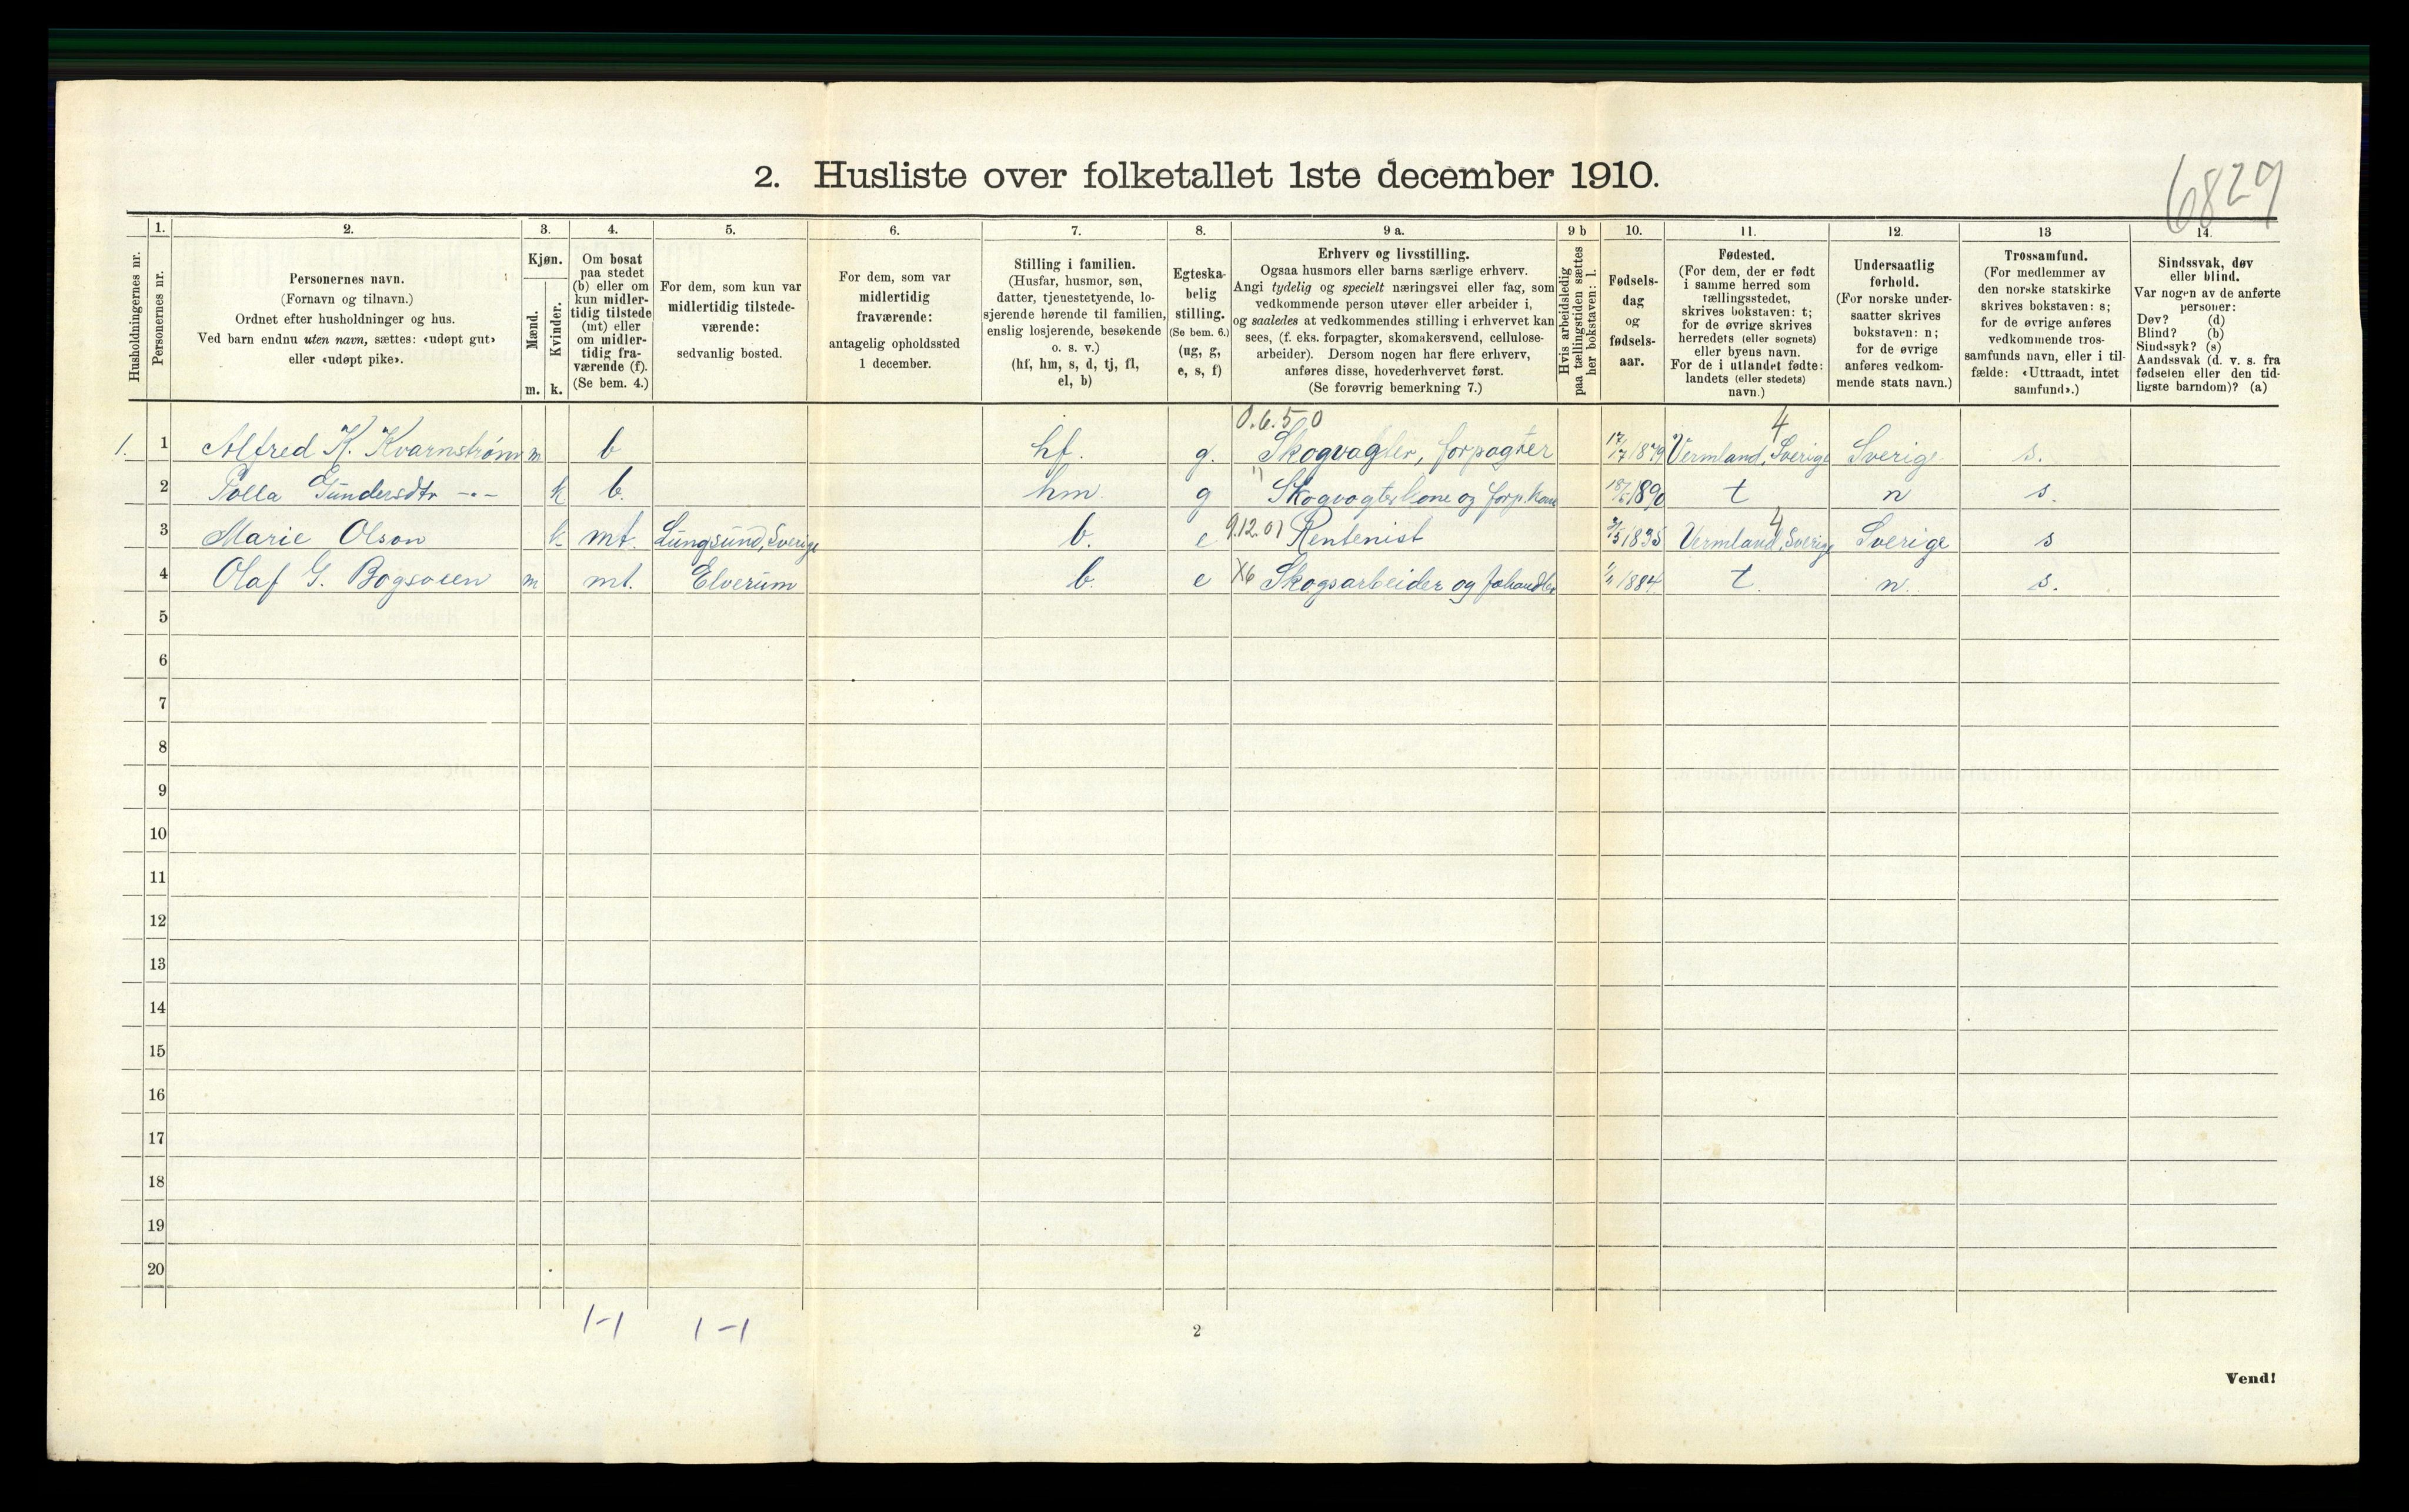 2. Husliste over folketallet 1ste december 1910.
6829
Husholdningernes nr.
1. Personernes nr.
2. Personernes navn.
(Fornavn og tilnavn.)
Ordnet efter husholdninger og hus.
Ved barn endnu uten navn, sættes: «udøpt gut»
eller «udøpt pike».
3. Kjøn.
Mænd. m.
Kvinder. k.
4. Om bosat
paa stedet
(b) eller om
kun midler-
tidig tilstede
(mt) eller
om midler-
tidig fra-
værende (f).
(Se bem. 4.)
5. For dem, som kun var
midlertidig tilstede-
værende:
sedvanlig bosted.
6. For dem, som var
midlertidig
fraværende:
antagelig opholdssted
1 december.
7. Stilling i familien.
(Husfar, husmor, søn,
datter, tjenestetyende, lo-
sjerende hørende til familien,
enslig losjerende, besøkende
o. s. v.)
(hf, hm, s, d, tj, fl,
el, b)
8. Egteska-
belig
stilling.
(Se bem. 6.)
(ug, g,
e, s, f)
9 a. Erhverv og livsstilling.
Ogsaa husmors eller barns særlige erhverv.
Angi tydelig og specielt næringsvei eller fag, som
vedkommende person utøver eller arbeider i,
og saaledes at vedkommendes stilling i erhvervet kan
sees, (f. eks. forpagter, skomakersvend, cellulose-
arbeider). Dersom nogen har flere erhverv,
anføres disse, hovederhvervet først.
(Se forøvrig bemerkning 7.)
9 b Hvis arbeidsledig
paa tællingstiden sættes
her bokstaven: l.
10. Fødsels-
dag
og
fødsels-
aar.
11. Fødested.
(For dem, der er født
i samme herred som
tællingsstedet,
skrives bokstaven: t;
for de øvrige skrives
herredets (eller sognets)
eller byens navn.
For de i utlandet fødte:
landets (eller stedets)
navn.)
12. Undersaatlig
forhold.
(For norske under-
saatter skrives
bokstaven: n;
for de øvrige
anføres vedkom-
mende stats navn.)
13 Trossamfund.
(For medlemmer av
den norske statskirke
skrives bokstaven: s;
for de øvrige anføres
vedkommende tros-
samfunds navn, eller i til-
fælde: «Uttraadt, intet
samfund».)
14. Sindssvak, døv
eller blind.
Var nogen av de anførte
personer:
Døv? (d)
Blind? (b)
Sindssyk? (s)
Aandssvak (d. v. s. fra
fødselen eller den tid-
ligste barndom)? (a)
0.6.50 4
1. 1 Alfred K. Kvarnstrøm m b hf. g. Skogvagter, forpagter 17/7 1879 Vermland, Sverige Sverige s.
2 Gundersdtr -"- k b. hm. g " Skogvogterkone og forp. kone 1890 t n s.
3 Marie Olson k. mt. Lungsund, Sverige b. e 9.12.01 Rentenist 1835 4 Vermland, Sverige Sverige s
4 Olaf G. Bogsveen m mt. Elverum b. e X6 Skogsarbeider og 1884 t. n. s.
5
6
7
8
9
10
11
12
13
14
15
16
17
18
19
20
1-1 1-1
2
Vend!